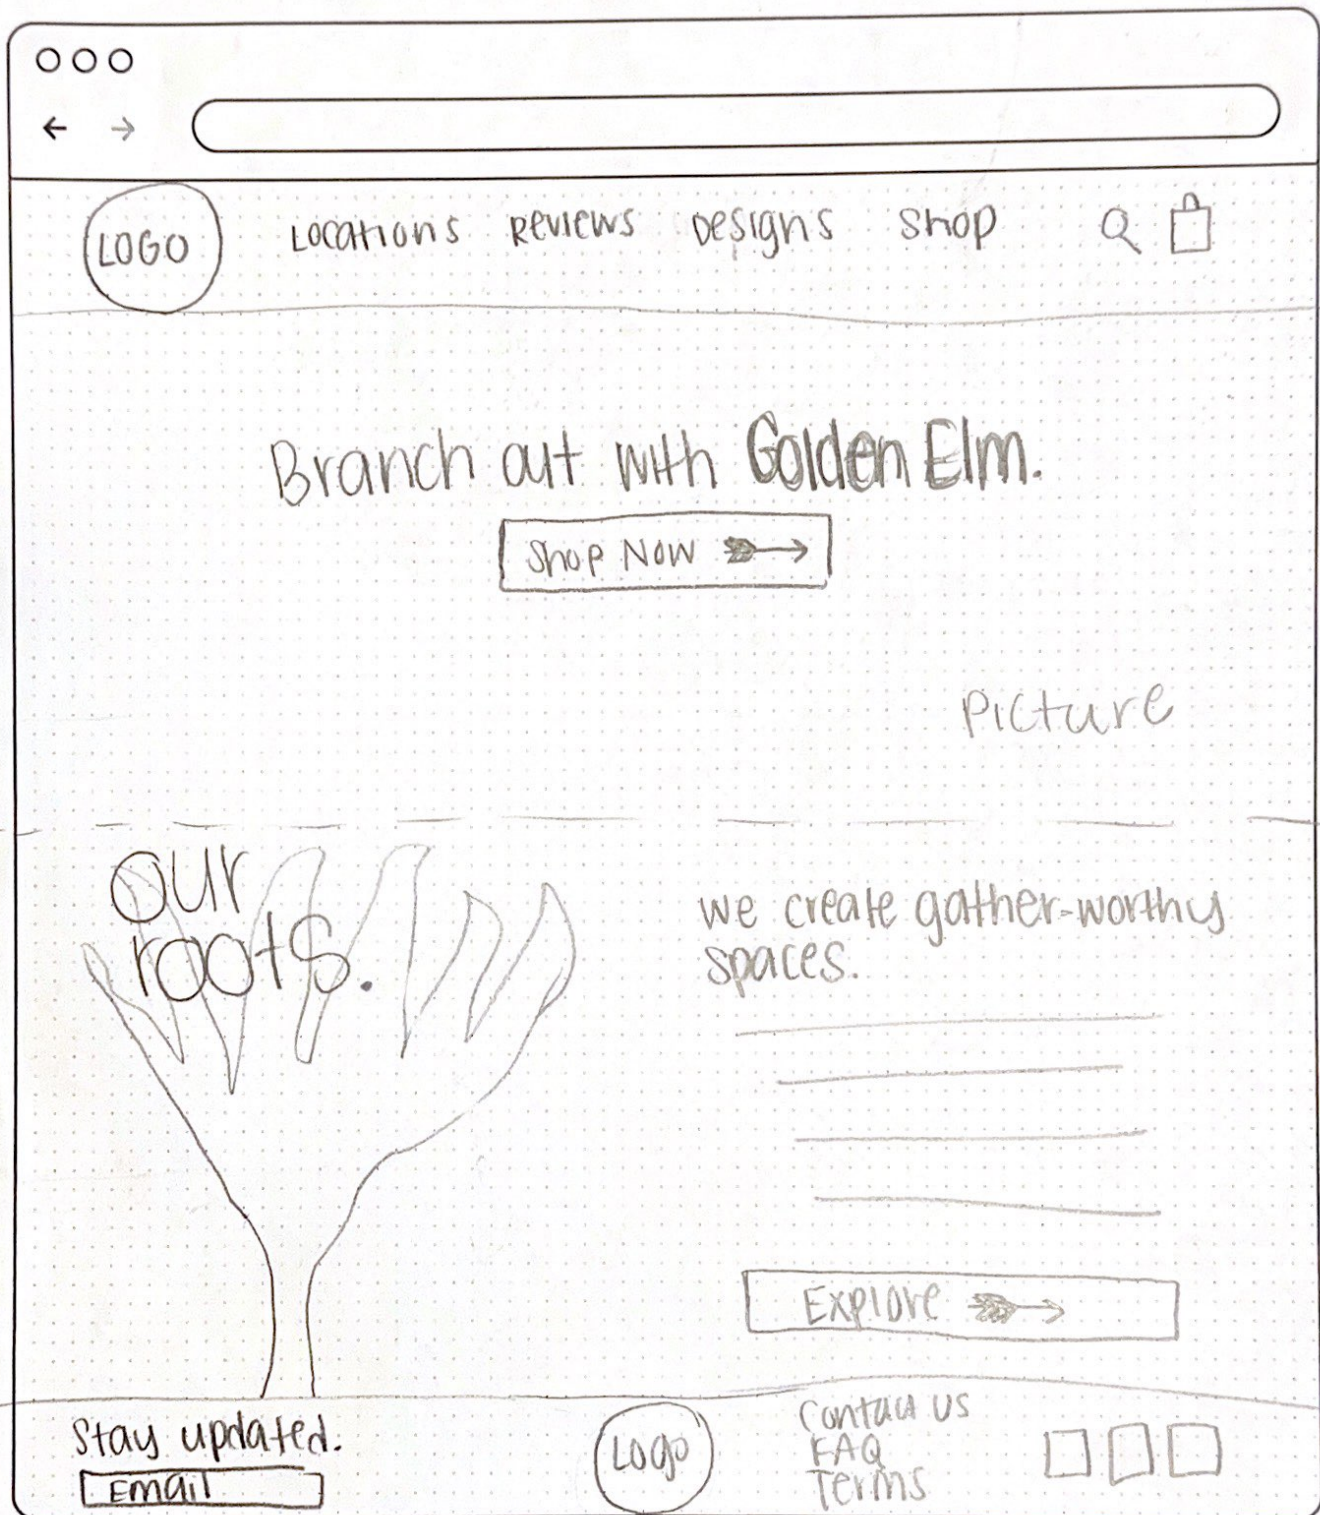 LOGO Locations Reviews Designs Shop
Branch out with Golden Elm.
Shop Now
Picture
our
roots.
we create gather-worthy
spaces.
Explore
Stay updated.
Email
Logo
Contact us
FAQ
Terms